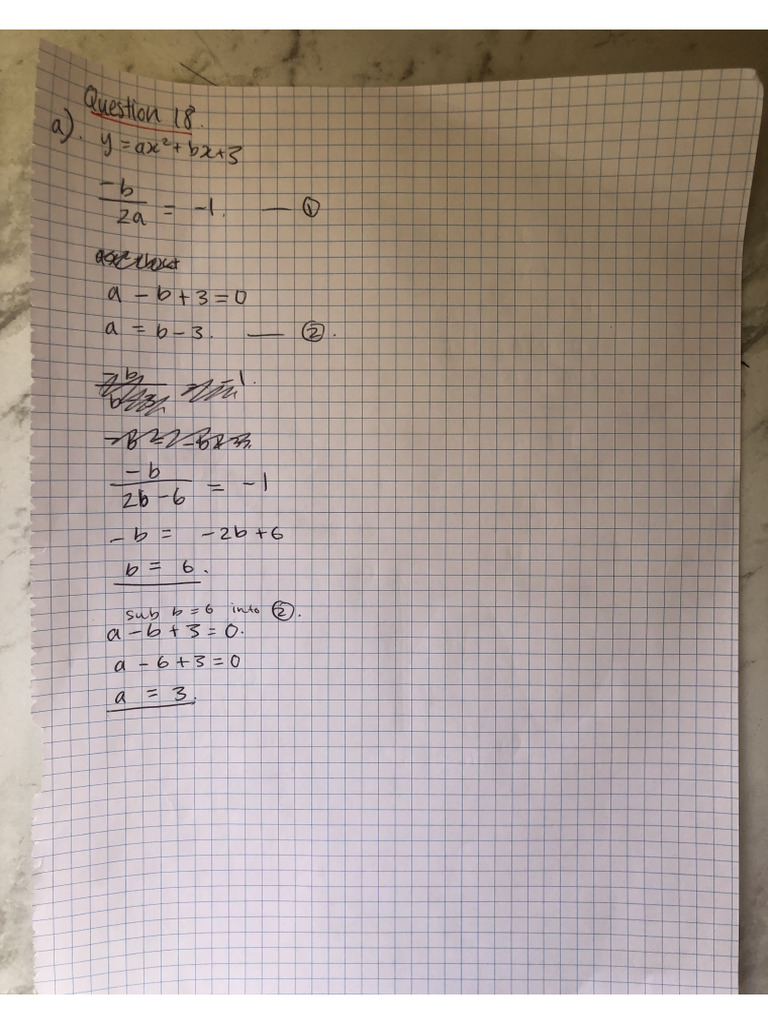 Question 18.
a). y = ax² + bx + 3
-b/2a = -1. — ①
a - b + 3 = 0
a = b - 3. — ②.
-b/2b - 6 = -1
-b = -2b + 6
b = 6.
sub b = 6 into ②.
a - b + 3 = 0.
a - 6 + 3 = 0
a = 3.